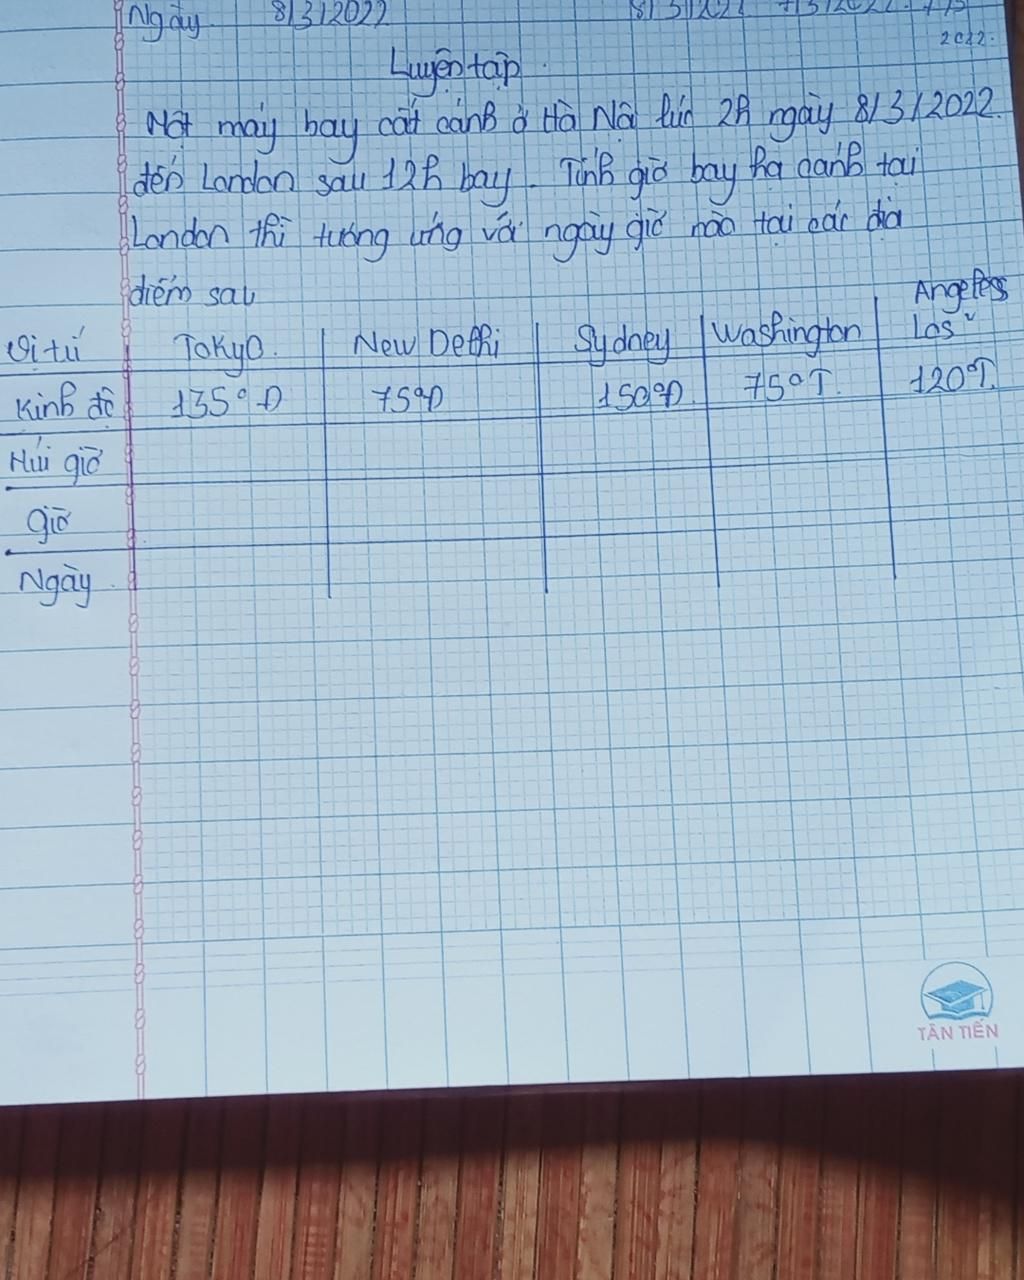 Ngày 8/3/2022 8/3/2022 7/3/2022. 7/3
2022.
Luyện tập.
Một máy bay cất cánh ở Hà Nội lúc 2h ngày 8/3/2022.
đến London sau 12h bay. Tính giờ bay hạ cánh tại
London thì tương ứng với ngày giờ nào tại các địa
điểm sau
Vị trí Tokyo. New Delhi Sydney Washington Angeles Los
Kinh độ 135°Đ 75°Đ 150°Đ 75°T. 120°T.
Múi giờ
giờ
Ngày
TÂN TIẾN